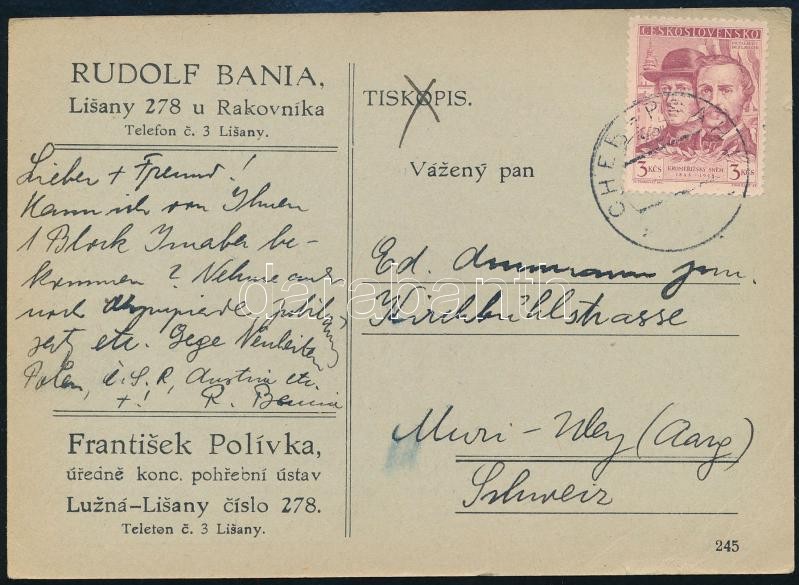 RUDOLF BANIA,
Lišany 278 u Rakovníka
Telefon č. 3 Lišany.
Lieber + Freund!
Kann ich von Ihnen
1 Block Imaba be-
kommen? Nehme auch
noch
etc. Gege Neuheiten
Polen, Č.S.R, Austria etc.
+! R. Bania
František Polívka,
úředně konc. pohřební ústav
Lužná-Lišany číslo 278.
Teleton č. 3 Lišany.
TISKOPIS.
Vážený pan
Ed. jun.
Kirchbühlstrasse
Muri - Wey (Aarg)
Schweiz
245
ČESKOSLOVENSKO
3 KČS KROMĚŘÍŽSKÝ SNĚM 3 KČS
1848 - 1948
CHEB
darabanth